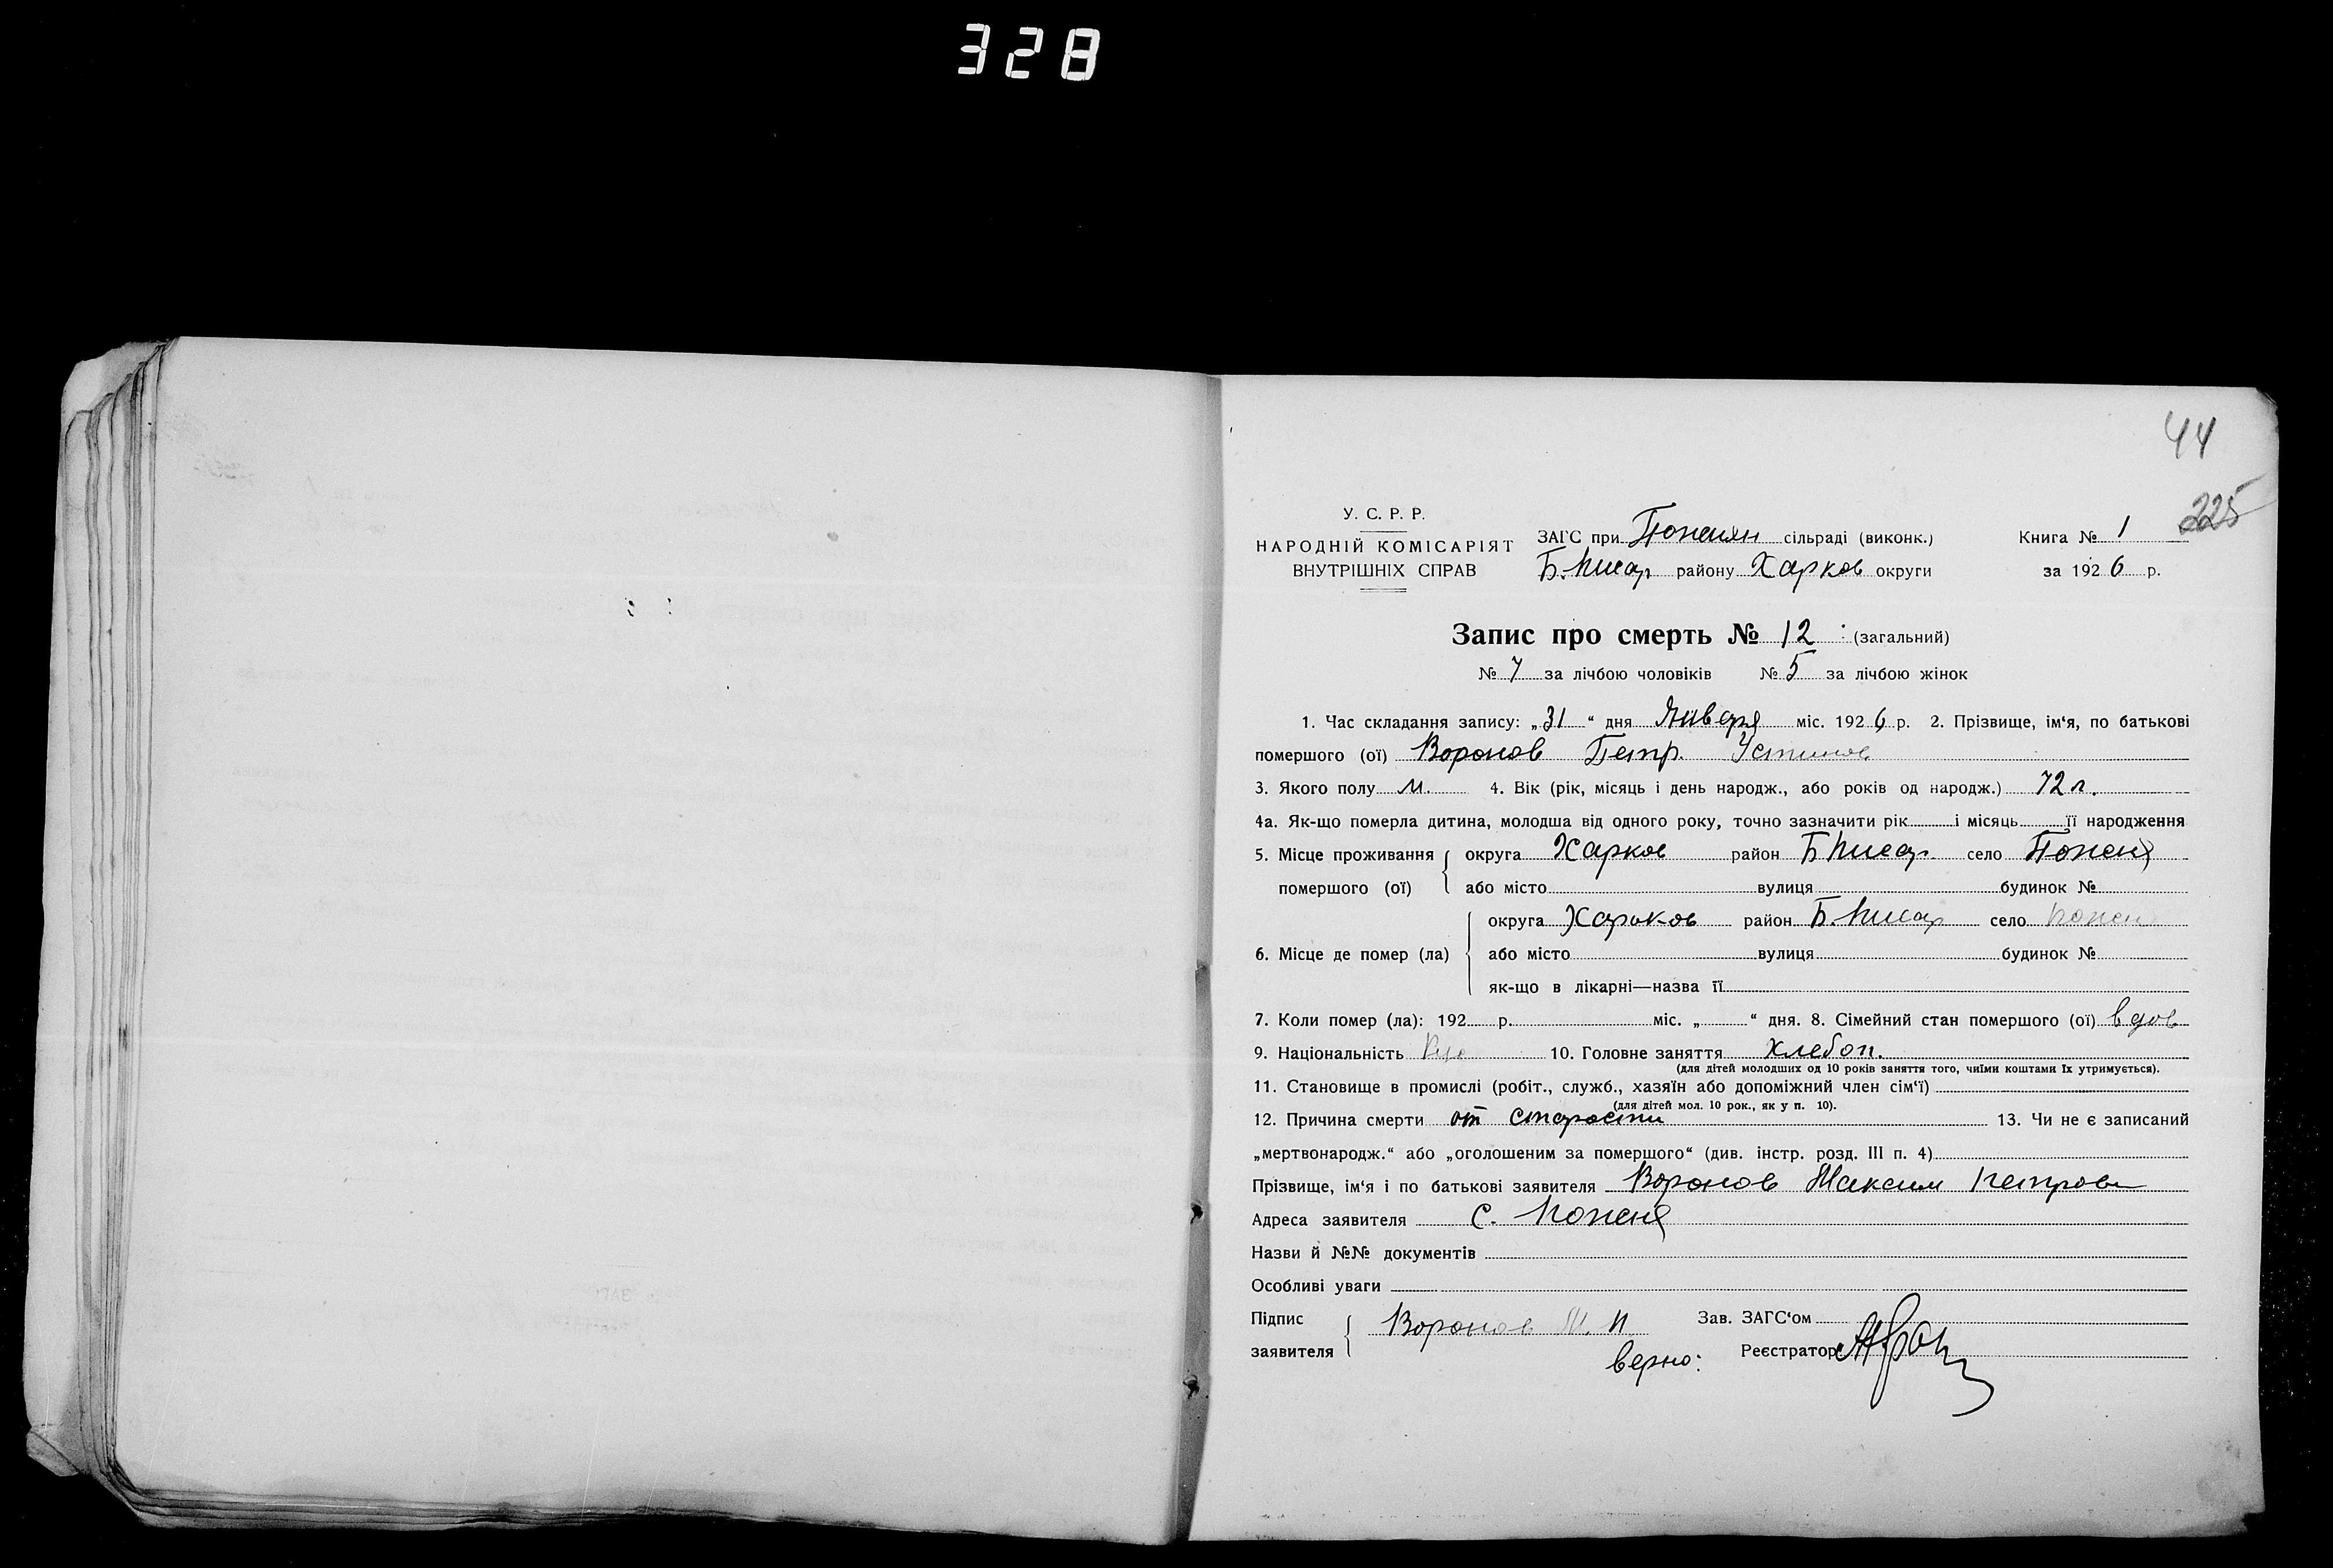 328
44
225
У. С. Р. Р.
НАРОДНІЙ КОМІСАРІЯТ
ВНУТРІШНІХ СПРАВ
ЗАГС при Поженян сільраді (виконк.)
Б. Писар району Харков округи
Книга № 1
за 1926 р.
Запис про смерть № 12 (загальний)
№ 7 за лічбою чоловіків № 5 за лічбою жінок
1. Час складання запису: „31“ дня Января міс. 1926 р. 2. Прізвище, ім‘я, по батькові
помершого (ої) Воронов Петр. Устинов
3. Якого полу м. 4. Вік (рік, місяць і день народж., або років од народж.) 72 л.
4а. Як-що померла дитина, молодша від одного року, точно зазначити рік і місяць її народження
5. Місце проживання помершого (ої) округа Харков район Б Писар село Поженя
або місто вулиця будинок №
6. Місце де помер (ла) округа Харьков район Б. Писар село Поженя
або місто вулиця будинок №
як-що в лікарні—назва її
7. Коли помер (ла): 192 р. міс. „ “ дня. 8. Сімейний стан помершого (ої) вдов
9. Національність Рус 10. Головне заняття Хлебоп.
(для дітей молодших од 10 років заняття того, чиїми коштами їх утримується).
11. Становище в промислі (робіт., служб., хазяїн або допоміжний член сім‘ї)
(для дітей мол. 10 рок., як у п. 10).
12. Причина смерти от старости 13. Чи не є записаний
„мертвонародж.“ або „оголошеним за помершого“ (див. інстр. розд. III п. 4)
Прізвище, ім‘я і по батькові заявителя Воронов Максим Петрови
Адреса заявителя с. Поженя
Назви й №№ документів
Особливі уваги
Підпис заявителя Воронов М. П
Зав. ЗАГС‘ом
верно: Реєстратор